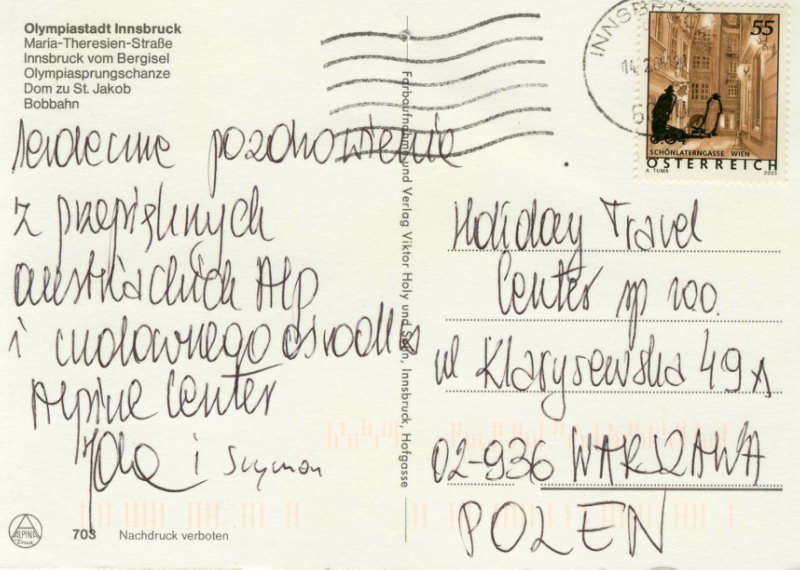 Olympiastadt Innsbruck
Maria-Theresien-Straße
Innsbruck vom Bergisel
Olympiasprungschanze
Dom zu St. Jakob
Bobbahn
serdeczne pozdrowienia
z przepięknych
austriackich Alp
i cudownego ośrodka
Alpine Center
i Szymon
703 Nachdruck verboten
ALPINA
Farbaufnahme und Verlag Viktor Holy und Sohn, Innsbruck, Hofgasse
INNSBRUCK
55
SCHÖNLATERNGASSE WIEN
ÖSTERREICH
A. TUMA 2003
Holiday Travel
Center sp zoo.
ul Klarysewska 49A
02-936 WARSZAWA
POLEN